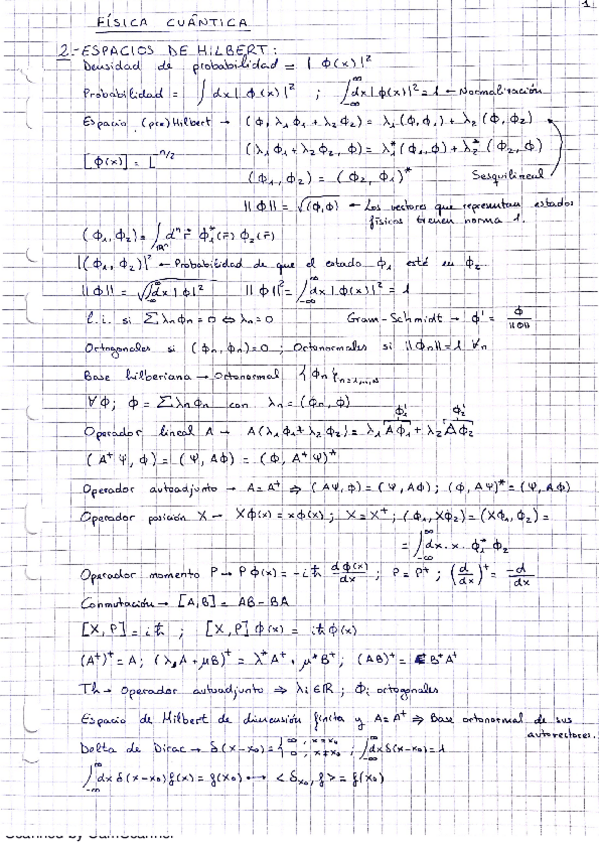 1
FÍSICA CUÁNTICA
2.- ESPACIOS DE HILBERT:
Densidad de probabilidad = |ϕ(x)|²
Probabilidad = ∫dx|ϕ(x)|² ; ∫_{-∞}^{∞}dx|ϕ(x)|² = 1 → Normalización
Espacio (pre)Hilbert → (ϕ, λ₁ϕ₁ + λ₂ϕ₂) = λ₁(ϕ,ϕ₁) + λ₂(ϕ,ϕ₂)
[ϕ(x)] = L^{-n/2} (λ₁ϕ₁ + λ₂ϕ₂, ϕ) = λ₁*(ϕ₁,ϕ) + λ₂*(ϕ₂,ϕ)
(ϕ₁,ϕ₂) = (ϕ₂,ϕ₁)* Sesquilineal
||ϕ|| = √(ϕ,ϕ) → Los vectores que representan estados
físicos tienen norma 1.
(ϕ₁,ϕ₂) = ∫_{ℝⁿ} dⁿr⃗ ϕ₁*(r⃗) ϕ₂(r⃗)
|(ϕ₁,ϕ₂)|² → Probabilidad de que el estado ϕ₁ esté en ϕ₂
||ϕ|| = √∫_{-∞}^{∞}dx|ϕ|² ||ϕ||² = ∫_{-∞}^{∞}dx|ϕ(x)|² = 1
l.i. si Σλₙϕₙ = 0 ⇔ λₙ = 0 Gram-Schmidt → ϕ' = ϕ/||ϕ||
Ortogonales si (ϕₙ,ϕₙ) = 0 ; Ortonormales si ||ϕₙ|| = 1 ∀ₙ
Base hilbertiana → Ortonormal {ϕₙ}
∀ϕ; ϕ = Σλₙϕₙ con λₙ = (ϕₙ,ϕ)
Operador lineal A → A(λ₁ϕ₁ + λ₂ϕ₂) = λ₁Aϕ₁ + λ₂Aϕ₂ ϕ₁' ϕ₂'
(A⁺ψ,ϕ) = (ψ,Aϕ) = (ϕ,A⁺ψ)*
Operador autoadjunto → A = A⁺ ⇒ (Aψ,ϕ) = (ψ,Aϕ) ; (ϕ,Aψ)* = (ψ,Aϕ)
Operador posición X → Xϕ(x) = xϕ(x) ; X = X⁺ ; (ϕ₁,Xϕ₂) = (Xϕ₁,ϕ₂) =
= ∫_{-∞}^{∞}dx·x·ϕ₁*ϕ₂
Operador momento P → Pϕ(x) = -iℏ dϕ(x)/dx ; P = P⁺ ; (d/dx)⁺ = -d/dx
Conmutación → [A,B] = AB - BA
[X,P] = iℏ ; [X,P]ϕ(x) = iℏϕ(x)
(A⁺)⁺ = A ; (λA + μB)⁺ = λ*A⁺ + μ*B⁺ ; (AB)⁺ = B⁺A⁺
Th → Operador autoadjunto ⇒ λᵢ∈ℝ ; ϕᵢ ortogonales
Espacio de Hilbert de dimensión finita y A = A⁺ ⇒ Base ortonormal de sus
autovectores.
Delta de Dirac → δ(x-x₀) = {∞, x=x₀ ; 0, x≠x₀ ; ∫_{-∞}^{∞}dxδ(x-x₀) = 1
∫_{-∞}^{∞}dxδ(x-x₀)f(x) = f(x₀) ⟷ <δ_{x₀},f> = f(x₀)
Scanned by CamScanner